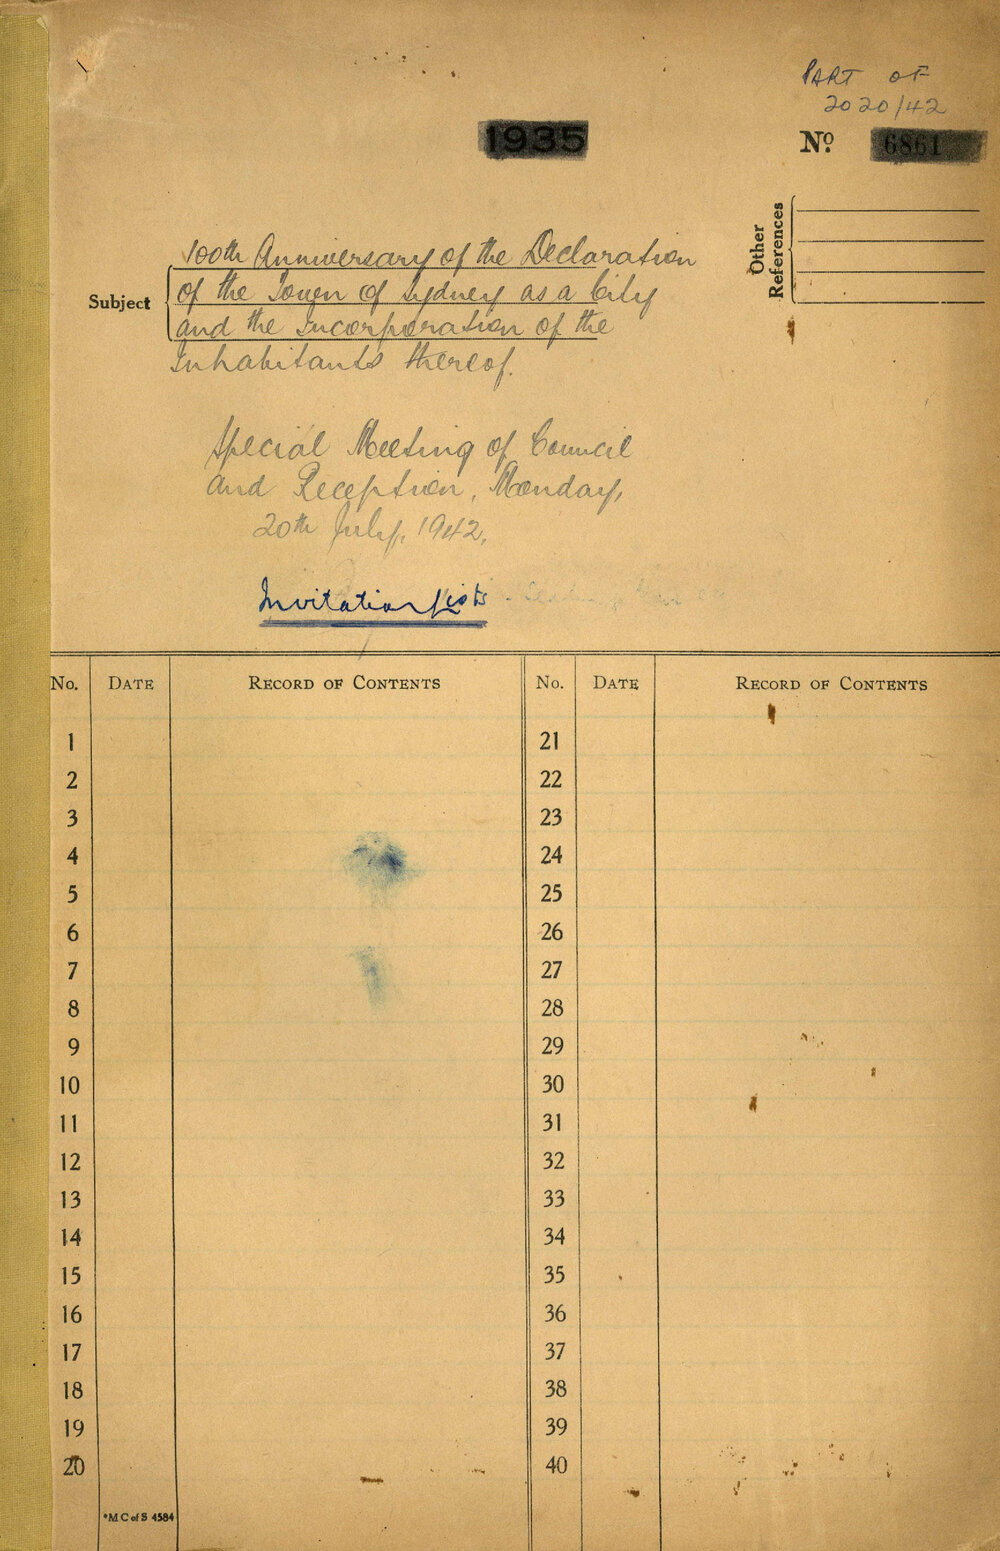 PART OF
2020/42
1935
No. 6861
Other
References
Subject
100th Anniversary of the Declaration
of the Town of Sydney as a City
and the Incorporation of the
Inhabitants thereof.
Special Meeting of Council
and Reception, Monday,
20th July, 1942.
Invitation Lists
No. DATE RECORD OF CONTENTS No. DATE RECORD OF CONTENTS
1 21
2 22
3 23
4 24
5 25
6 26
7 27
8 28
9 29
10 30
11 31
12 32
13 33
14 34
15 35
16 36
17 37
18 38
19 39
20 40
*M C of S 4584